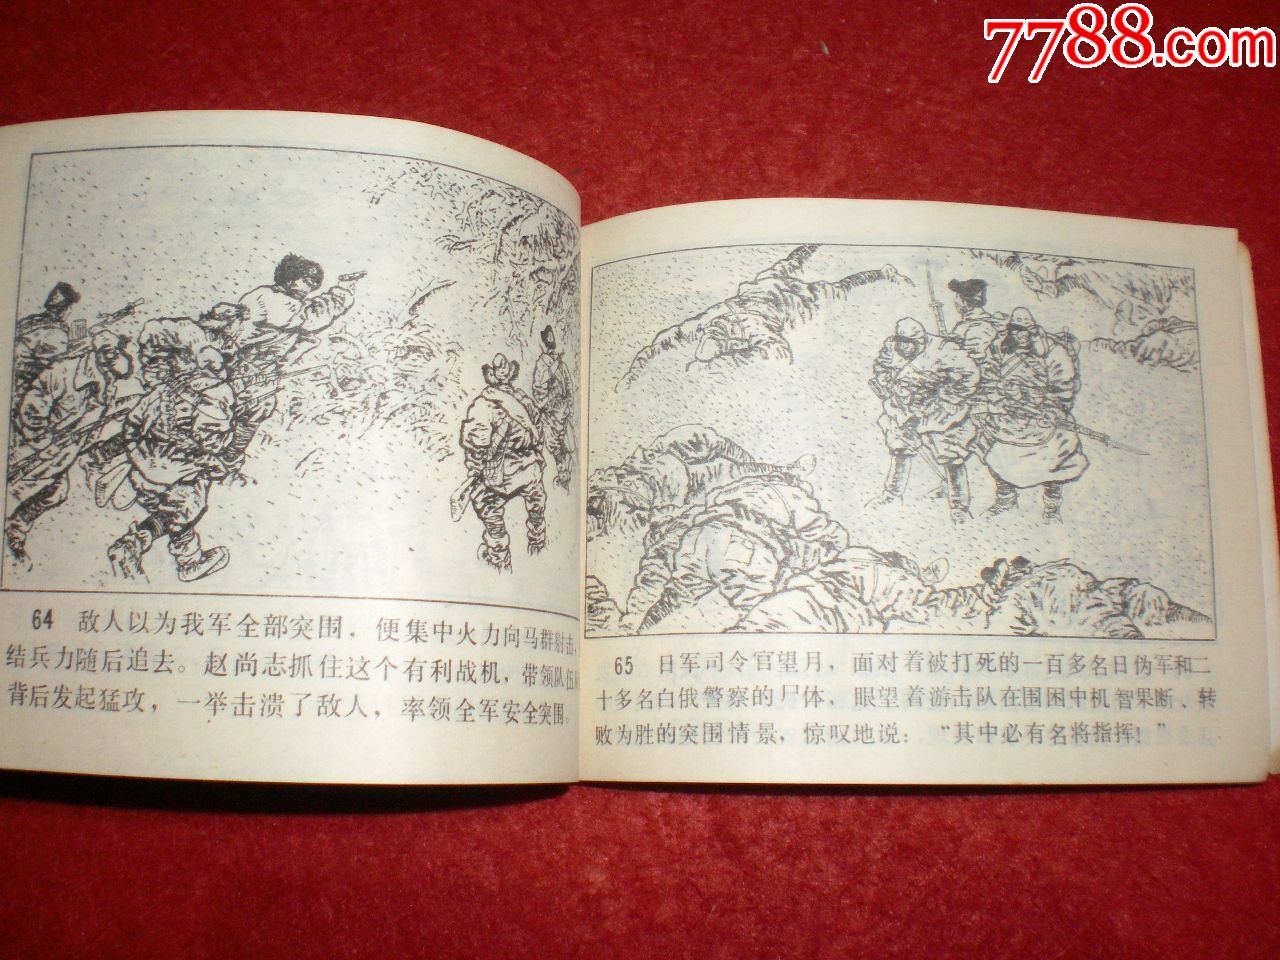 7788.com
64 敌人以为我军全部突围，便集中火力向马群射击、
结兵力随后追去。赵尚志抓住这个有利战机，带领队伍从
背后发起猛攻，一举击溃了敌人，率领全军安全突围。
65 日军司令官望月，面对着被打死的一百多名日伪军和二
十多名白俄警察的尸体，眼望着游击队在围困中机智果断、转
败为胜的突围情景，惊叹地说：“其中必有名将指挥！”